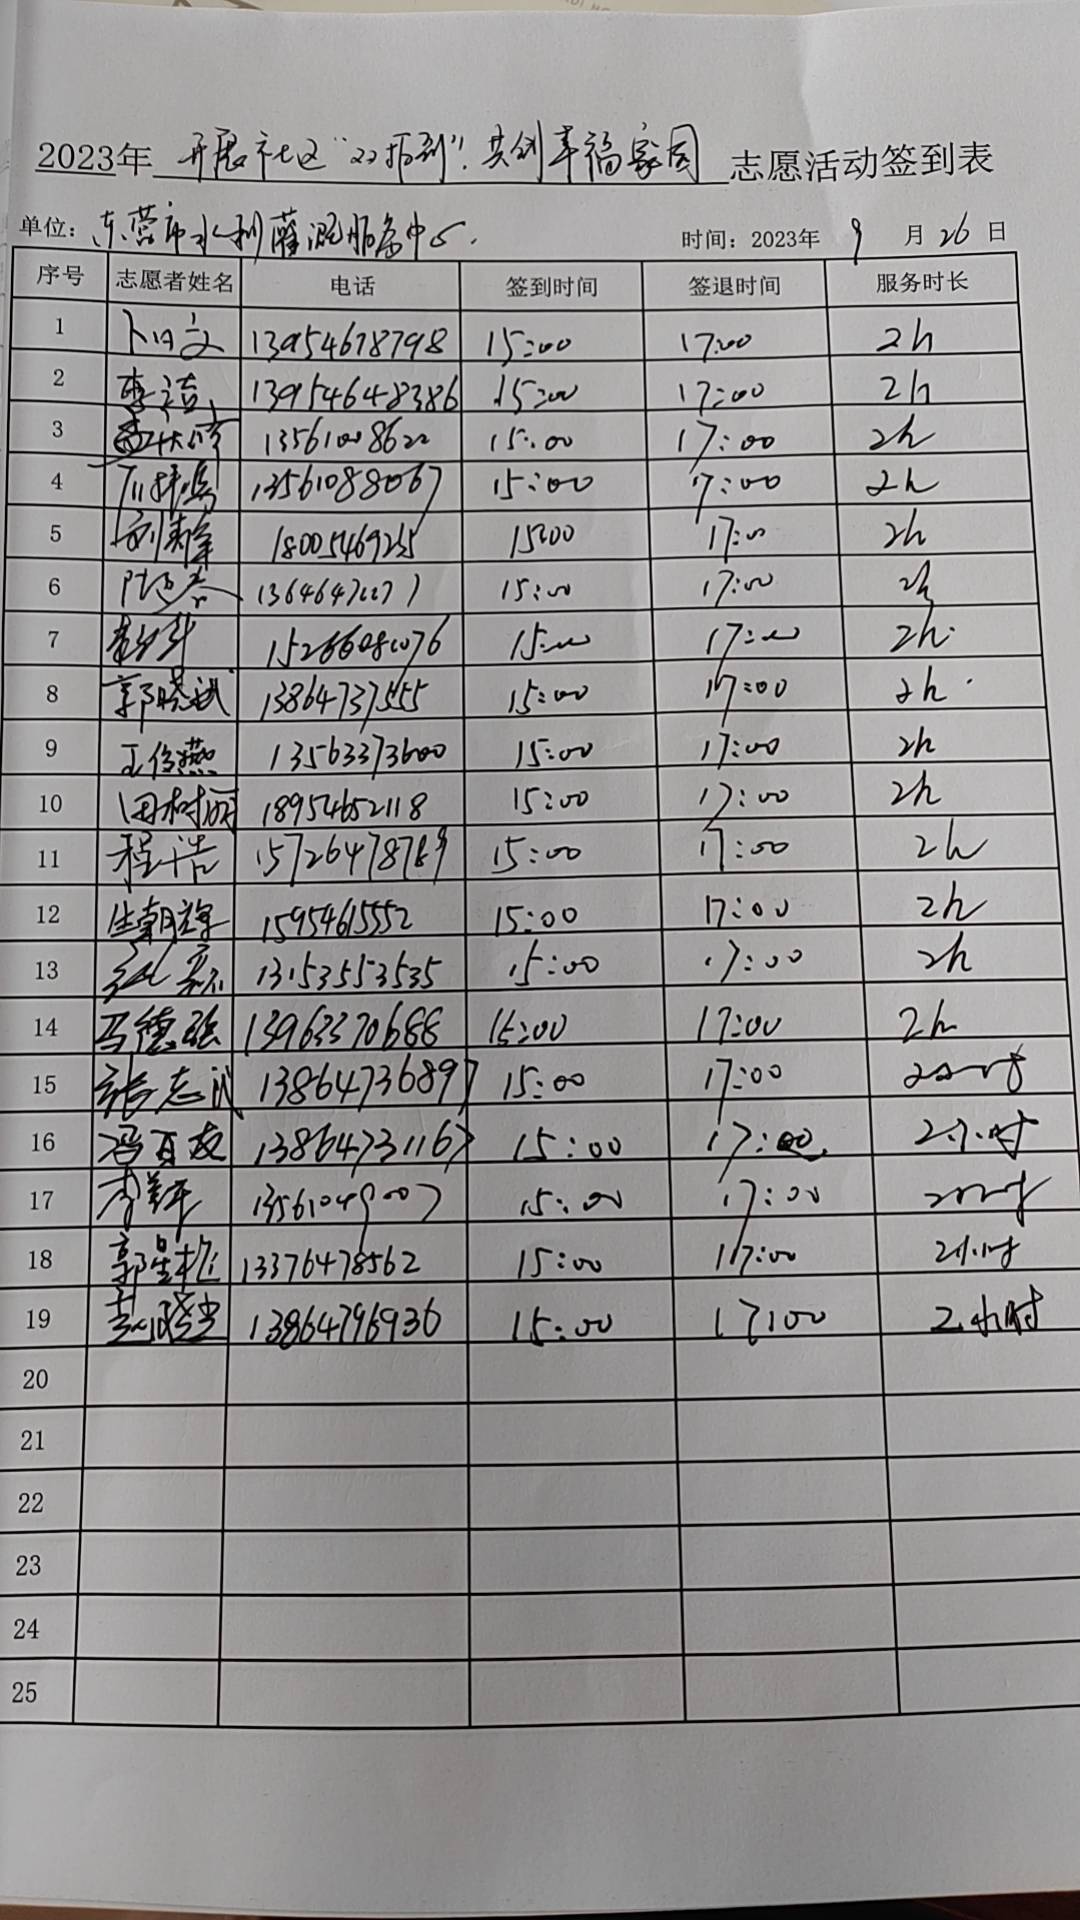 2023年 开展社区"双报到".共创幸福家园 志愿活动签到表
单位: 东营市水利灌溉服务中心. 时间: 2023年 9 月 26 日
序号 志愿者姓名 电话 签到时间 签退时间 服务时长
1 13954678798 15:00 17:00 2h
2 李洁 13954648386 15:00 17:00 2h
3 13561008622 15:00 17:00 2h
4 13561088067 15:00 17:00 2h
5 15:00 17:00 2h
6 15:00 17:00 2h
7 15:00 17:00 2h
8 郭晓斌 13864737555 15:00 17:00 2h
9 王俊燕 13563373600 15:00 17:00 2h
10 田树丽 18954652118 15:00 17:00 2h
11 程浩 15726478789 15:00 17:00 2h
12 生朝辉 15954615552 15:00 17:00 2h
13 13153553535 15:00 17:00 2h
14 马德强 13963370688 15:00 17:00 2h
15 张志武 13864736897 15:00 17:00 2小时
16 冯百友 13864731167 15:00 17:00 2小时
17 13561049007 15:00 17:00 2小时
18 13376478562 15:00 17:00 2小时
19 13864796936 15:00 17:00 2小时
20
21
22
23
24
25